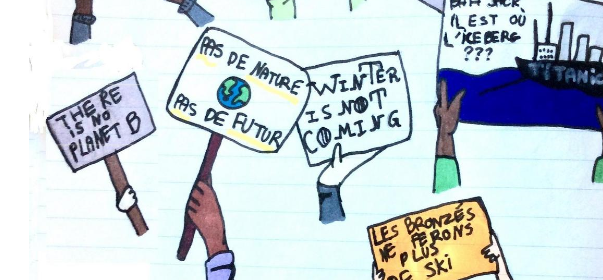 JACK,
IL EST OÙ
L'ICEBERG
???
TITANIC
PAS DE NATURE
PAS DE FUTUR
WINTER
IS NOT
COMING
THERE
IS NO
PLANET B
LES BRONZÉS
NE FERONS
PLUS
DE SKI